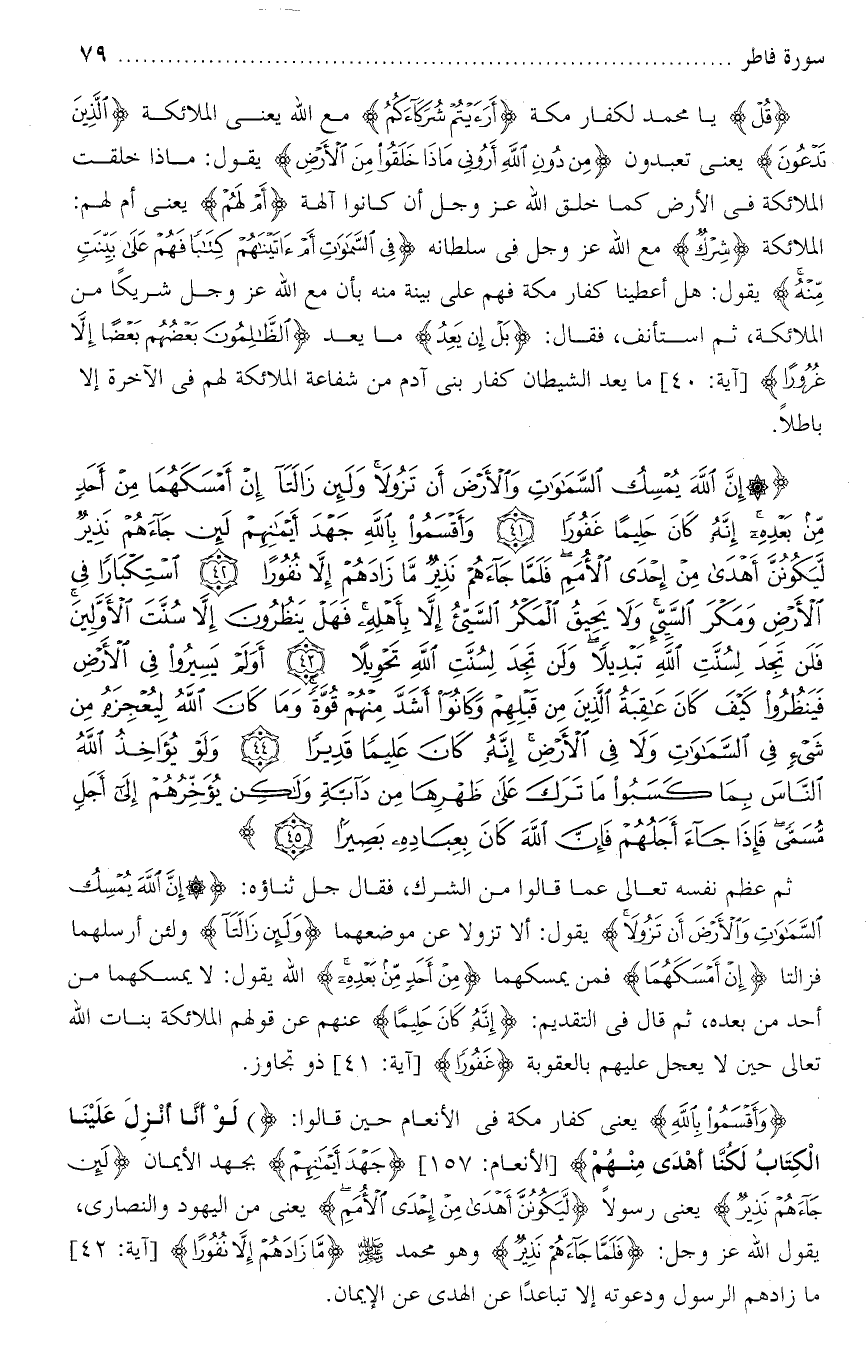 سورة فاطر ........................................................................ ٧٩
﴿قُلْ﴾ يا محمد لكفار مكة ﴿أَرَءَيْتُمْ شُرَكَآءَكُمُ﴾ مع الله يعنى الملائكة ﴿ٱلَّذِينَ
تَدْعُونَ﴾ يعنى تعبدون ﴿مِن دُونِ ٱللَّهِ أَرُونِى مَاذَا خَلَقُوا۟ مِنَ ٱلْأَرْضِ﴾ يقول: ماذا خلقت
الملائكة فى الأرض كما خلق الله عز وجل أن كانوا آلهة ﴿أَمْ لَهُمْ﴾ يعنى أم لهم:
الملائكة ﴿شِرْكٌ﴾ مع الله عز وجل فى سلطانه ﴿فِى ٱلسَّمَٰوَٰتِ أَمْ ءَاتَيْنَٰهُمْ كِتَٰبًا فَهُمْ عَلَىٰ بَيِّنَتٍ
مِّنْهُ﴾ يقول: هل أعطينا كفار مكة فهم على بينة منه بأن مع الله عز وجل شريكًا من
الملائكة، ثم استأنف، فقال: ﴿بَلْ إِن يَعِدُ﴾ ما يعد ﴿ٱلظَّٰلِمُونَ بَعْضُهُم بَعْضًا إِلَّا
غُرُورًا﴾ [آية: ٤٠] ما يعد الشيطان كفار بنى آدم من شفاعة الملائكة لهم فى الآخرة إلا
باطلاً.
﴿۞إِنَّ ٱللَّهَ يُمْسِكُ ٱلسَّمَٰوَٰتِ وَٱلْأَرْضَ أَن تَزُولَا ۚ وَلَئِن زَالَتَآ إِنْ أَمْسَكَهُمَا مِنْ أَحَدٍ
مِّنۢ بَعْدِهِۦٓ ۚ إِنَّهُۥ كَانَ حَلِيمًا غَفُورًا ٤١ وَأَقْسَمُوا۟ بِٱللَّهِ جَهْدَ أَيْمَٰنِهِمْ لَئِن جَآءَهُمْ نَذِيرٌ
لَّيَكُونُنَّ أَهْدَىٰ مِنْ إِحْدَى ٱلْأُمَمِ ۖ فَلَمَّا جَآءَهُمْ نَذِيرٌ مَّا زَادَهُمْ إِلَّا نُفُورًا ٤٢ ٱسْتِكْبَارًا فِى
ٱلْأَرْضِ وَمَكْرَ ٱلسَّيِّئِ ۚ وَلَا يَحِيقُ ٱلْمَكْرُ ٱلسَّيِّئُ إِلَّا بِأَهْلِهِۦ ۚ فَهَلْ يَنظُرُونَ إِلَّا سُنَّتَ ٱلْأَوَّلِينَ ۚ
فَلَن تَجِدَ لِسُنَّتِ ٱللَّهِ تَبْدِيلًا ۖ وَلَن تَجِدَ لِسُنَّتِ ٱللَّهِ تَحْوِيلًا ٤٣ أَوَلَمْ يَسِيرُوا۟ فِى ٱلْأَرْضِ
فَيَنظُرُوا۟ كَيْفَ كَانَ عَٰقِبَةُ ٱلَّذِينَ مِن قَبْلِهِمْ وَكَانُوٓا۟ أَشَدَّ مِنْهُمْ قُوَّةً ۚ وَمَا كَانَ ٱللَّهُ لِيُعْجِزَهُۥ مِن
شَىْءٍ فِى ٱلسَّمَٰوَٰتِ وَلَا فِى ٱلْأَرْضِ ۚ إِنَّهُۥ كَانَ عَلِيمًا قَدِيرًا ٤٤ وَلَوْ يُؤَاخِذُ ٱللَّهُ
ٱلنَّاسَ بِمَا كَسَبُوا۟ مَا تَرَكَ عَلَىٰ ظَهْرِهَا مِن دَآبَّةٍ وَلَٰكِن يُؤَخِّرُهُمْ إِلَىٰٓ أَجَلٍ
مُّسَمًّى ۖ فَإِذَا جَآءَ أَجَلُهُمْ فَإِنَّ ٱللَّهَ كَانَ بِعِبَادِهِۦ بَصِيرًا ٤٥ ﴾
ثم عظم نفسه تعالى عما قالوا من الشرك، فقال جل ثناؤه: ﴿۞إِنَّ ٱللَّهَ يُمْسِكُ
ٱلسَّمَٰوَٰتِ وَٱلْأَرْضَ أَن تَزُولَا ۚ﴾ يقول: ألا تزولا عن موضعهما ﴿وَلَئِن زَالَتَآ﴾ ولئن أرسلهما
فزالتا ﴿إِنْ أَمْسَكَهُمَا﴾ فمن يمسكهما ﴿مِنْ أَحَدٍ مِّنۢ بَعْدِهِۦٓ ۚ﴾ الله يقول: لا يمسكهما من
أحد من بعده، ثم قال فى التقديم: ﴿إِنَّهُۥ كَانَ حَلِيمًا﴾ عنهم عن قولهم الملائكة بنات الله
تعالى حين لا يعجل عليهم بالعقوبة ﴿غَفُورًا﴾ [آية: ٤١] ذو تجاوز.
﴿وَأَقْسَمُوا۟ بِٱللَّهِ﴾ يعنى كفار مكة فى الأنعام حين قالوا: ﴿) لَوْ أَنَّا أُنْزِلَ عَلَيْنَا
الْكِتَابُ لَكُنَّا أَهْدَى مِنْهُمْ﴾ [الأنعام: ١٥٧] ﴿جَهْدَ أَيْمَٰنِهِمْ﴾ بجهد الأيمان ﴿لَئِن
جَآءَهُمْ نَذِيرٌ﴾ يعنى رسولاً ﴿لَّيَكُونُنَّ أَهْدَىٰ مِنْ إِحْدَى ٱلْأُمَمِ ۖ﴾ يعنى من اليهود والنصارى،
يقول الله عز وجل: ﴿فَلَمَّا جَآءَهُمْ نَذِيرٌ﴾ وهو محمد ﷺ ﴿مَّا زَادَهُمْ إِلَّا نُفُورًا﴾ [آية: ٤٢]
ما زادهم الرسول ودعوته إلا تباعدًا عن الهدى عن الإيمان.